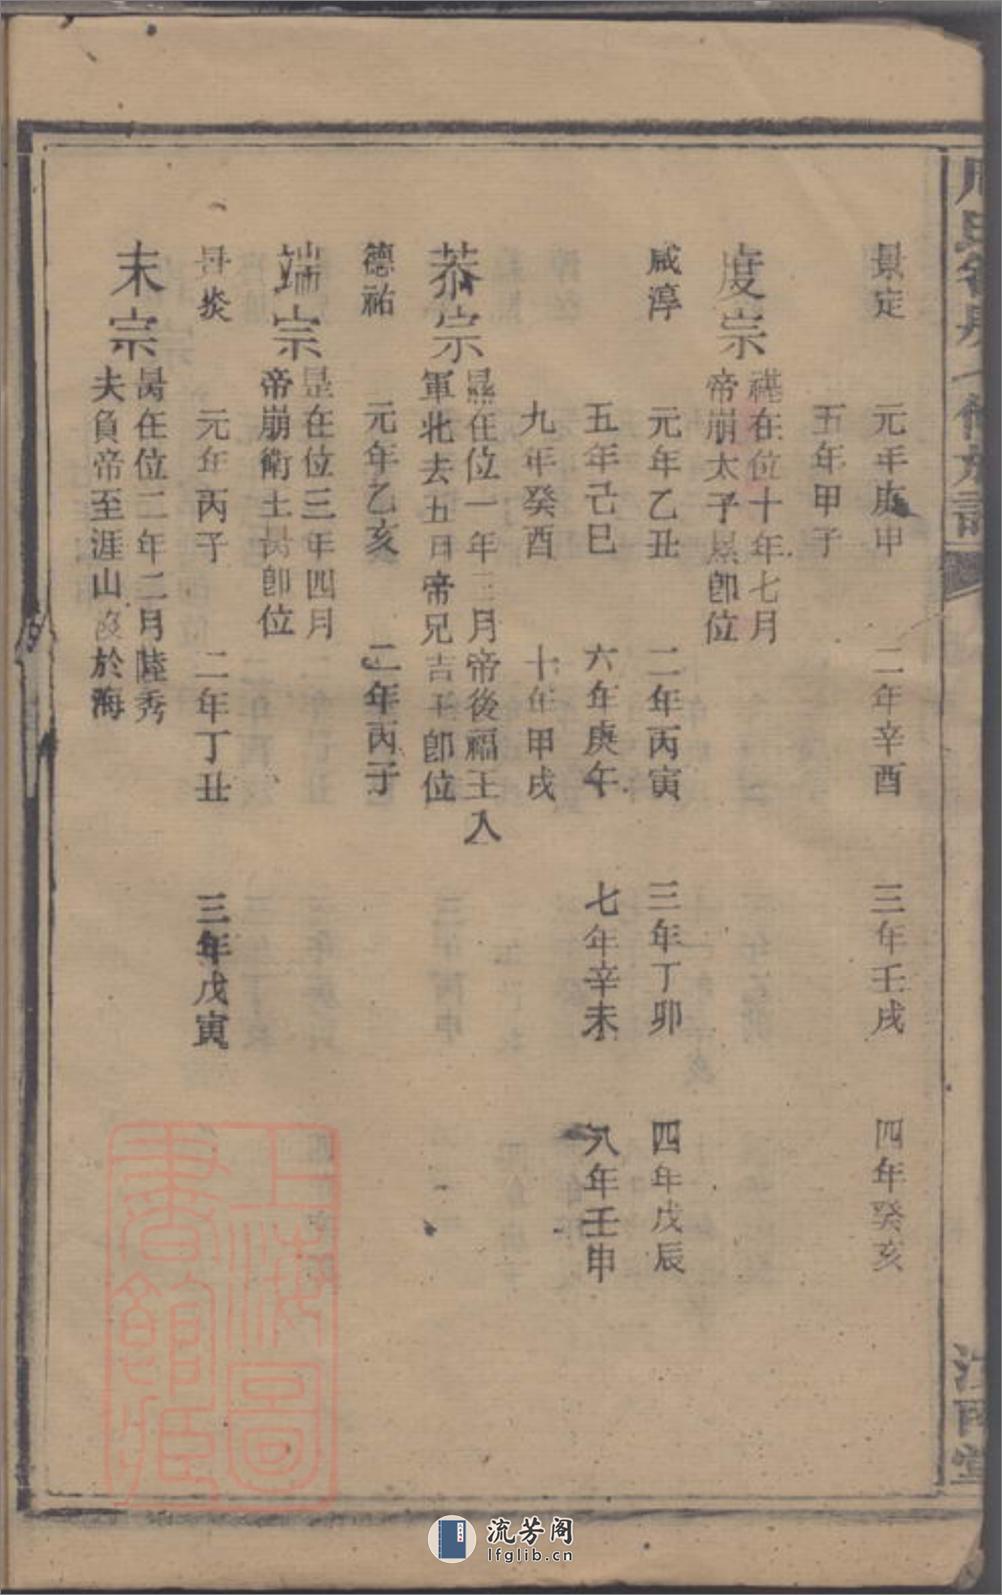 景定
元年庚申 二年辛酉 三年壬戌 四年癸亥
五年甲子
度宗
禥在位十年七月
帝崩太子㬎卽位
咸淳
元年乙丑 二年丙寅 三年丁卯 四年戊辰
五年己巳 六年庚午 七年辛未 八年壬申
九年癸酉 十年甲戌
恭宗
㬎在位一年三月帝後福王入
軍北去五日帝兄吉王卽位
德祐
元年乙亥 二年丙子
端宗
昰在位三年四月
帝崩衛士昺卽位
炎
元年丙子 二年丁丑 三年戊寅
末宗
昺在位二年二月陸秀
夫負帝至涯山沒於海
江西堂
上海圖
書館藏
流芳阁
lfglib.cn